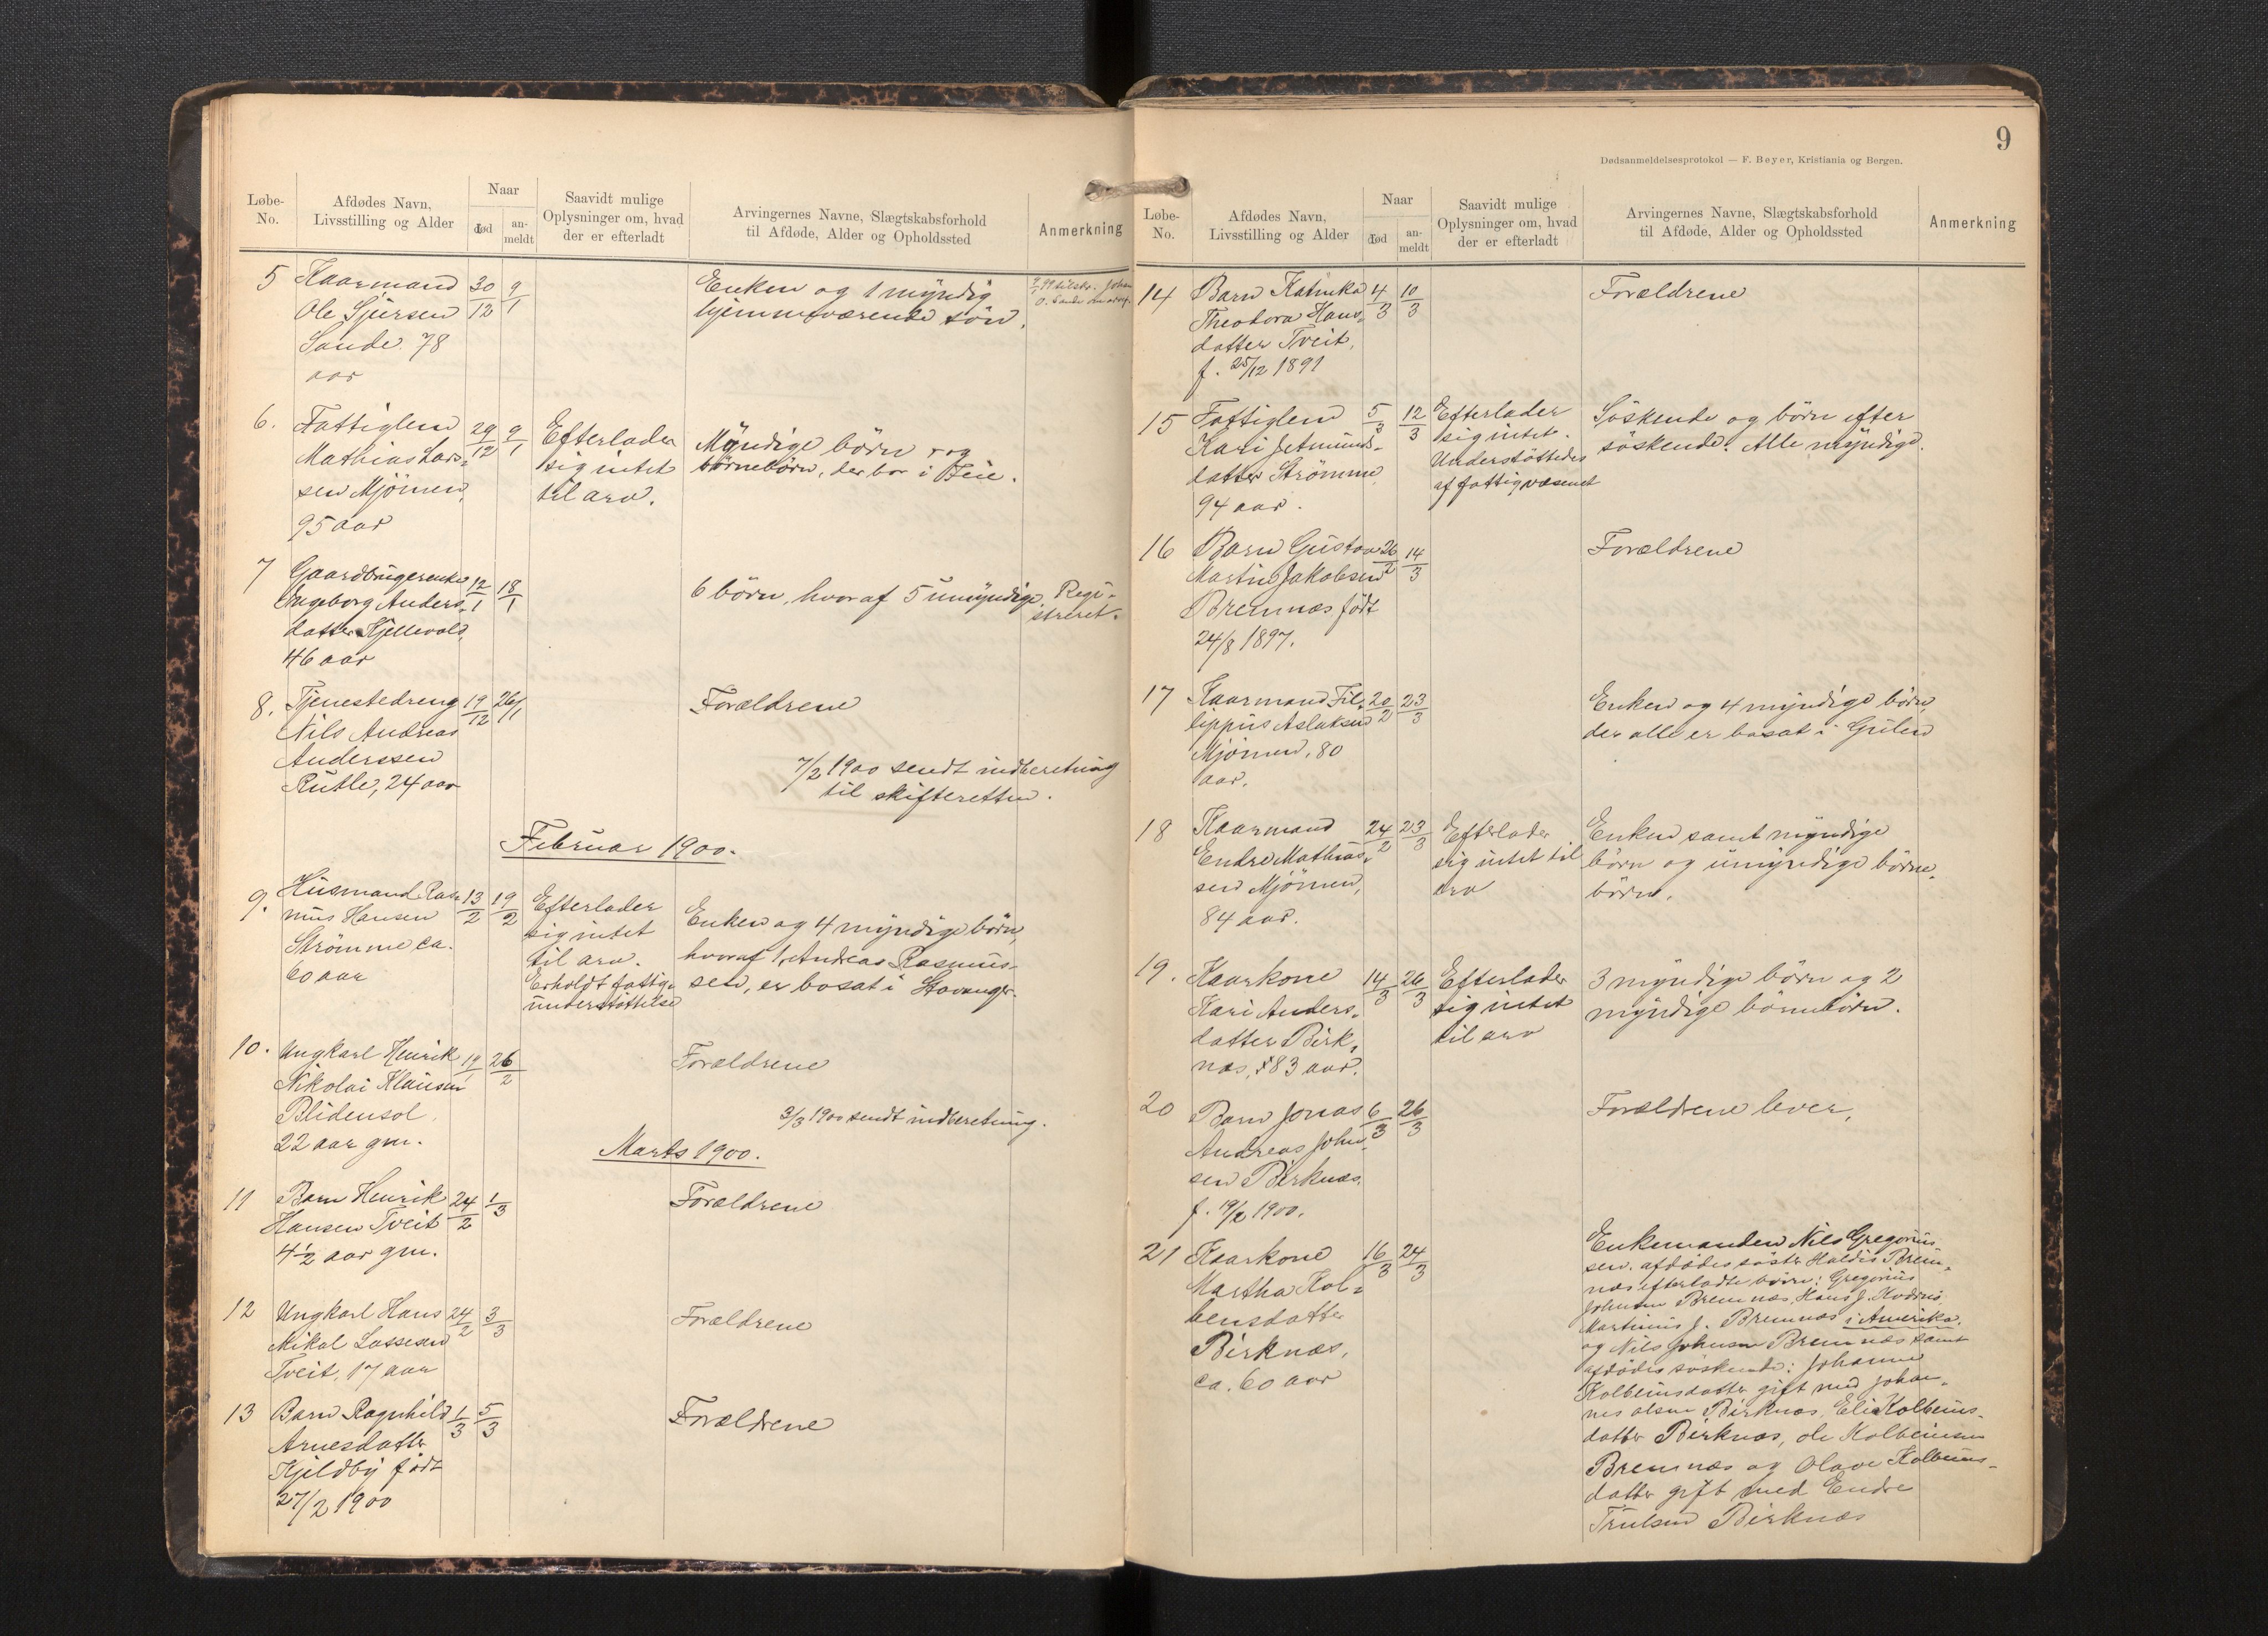 Løbe-
No.
Afdødes Navn,
Livsstilling og Alder
Naar
død
an-
meldt
Saavidt mulige
Oplysninger om, hvad
der er efterladt
Arvingernes Navne, Slægtskabsforhold
til Afdøde, Alder og Opholdssted
Anmerkning
5 Kaarmand 30/12 9/1
Ole Sjursen
Sande. 78
aar
Enken og 1 myndig
hjemmeværende søn.
6. Fattiglem 29/12 9/1
Mathias Lars-
sen Mjömen,
95 aar
Efterlader
sig intet
til arv.
Myndige børn og
børnebørn, der bor i
7 Gaardbrugerenke 12/1 18/1
Ingeborg Anders-
datter Kjellevold,
46 aar
6 børn, hvoraf 5 umyndige
Regi-
streret.
8. Tjenestedreng 19/12 26/1
Nils Andreas
Anderssen
Rutle, 24 aar
Forældrene
7/2 1900 sendt indberetning
til skifteretten.
Februar 1900.
9. Husmand Ras- 13/2 19/2
mus Hansen
Strömme ca.
60 aar
Efterlader
sig intet
til arv.
Erholdt fattig-
understöttelse
Enken og 4 myndige børn,
hvoraf 1, Andreas Rasmus-
sen, er bosat i Stavanger.
10. Ungkarl Henrik 26/2
Nikolai Klausen
Blidensol.
22 aar gm.
Forældrene
3/3 1900 sendt indberetning.
Marts 1900.
11 Barn Henrik 24/2 1/3
Hansen Tveit
4½ aar gm.
Forældrene
12 Ungkarl Hans 24/2 3/3
Mikal Lassesen
Tveit, 17 aar
Forældrene
13 Barn Ragnhild 1/3 5/3
Arnesdatter
Kjeldby født
27/2 1900
Forældrene
9
Dødsanmeldelsesprotokol — F. Beyer, Kristiania og Bergen.
Løbe-
No.
Afdødes Navn,
Livsstilling og Alder
Naar
død
an-
meldt
Saavidt mulige
Oplysninger om, hvad
der er efterladt
Arvingernes Navne, Slægtskabsforhold
til Afdøde, Alder og Opholdssted
Anmerkning
14 Barn Katinka 4/3 10/3
Theodora Hans-
datter Tveit,
f. 25/12 1891
Forældrene
15 Fattiglem 5/3 12/3
Kari Jetmunds-
datter Strömme,
94 aar.
Efterlader
sig intet.
Understöttedes
af fattigvæsenet
Söskende og börn efter
söskende. Alle myndige.
16 Barn Gustav 26/2 14/3
Martin Jakobsen
Bremnæs født
24/8 1897.
Forældrene
17 Kaarmand Fil- 20/2 23/3
lippus Aslaksen
Mjömen, 80
aar.
Enken og 4 myndige börn,
der alle er bosat i Gulen
18 Kaarmand 24/2 23/3
Endre Mathias-
sen Mjömen,
84 aar.
Efterlader
sig intet til
arv
Enken samt myndige
börn og umyndige börne-
börn.
19. Kaarkone 14/3 26/3
Kari Anders-
datter Birk-
næs, 83 aar.
Efterlader
sig intet
til arv
3 myndige börn og 2
myndige börnebörn.
20 Barn Jonas 6/3 26/3
Andreas John-
sen Birknæs.
f. 19/2 1900.
Forældrene lever.
21 Kaarkone 16/3 24/3
Martha Kol-
bensdatter
Birknæs,
ca. 60 aar
Enkemanden Nils Gregorius-
sen. afdødes søster Haldis Brem-
næs efterladte börn: Gregorius
Johnsen Bremnæs, Hans J.
Martinus J. Bremnæs i Amerika.
og Nils Johnsen Bremnæs samt
afdødes söskende: Johanne
Kolbeinsdatter gift med Johan-
nes Olsen Birknæs, Eli Kolbeins-
datter Birknæs, Ole Kolbeinsen
Bremnæs og Olave Kolbeins-
datter gift med Endre
Trulsen Birknæs